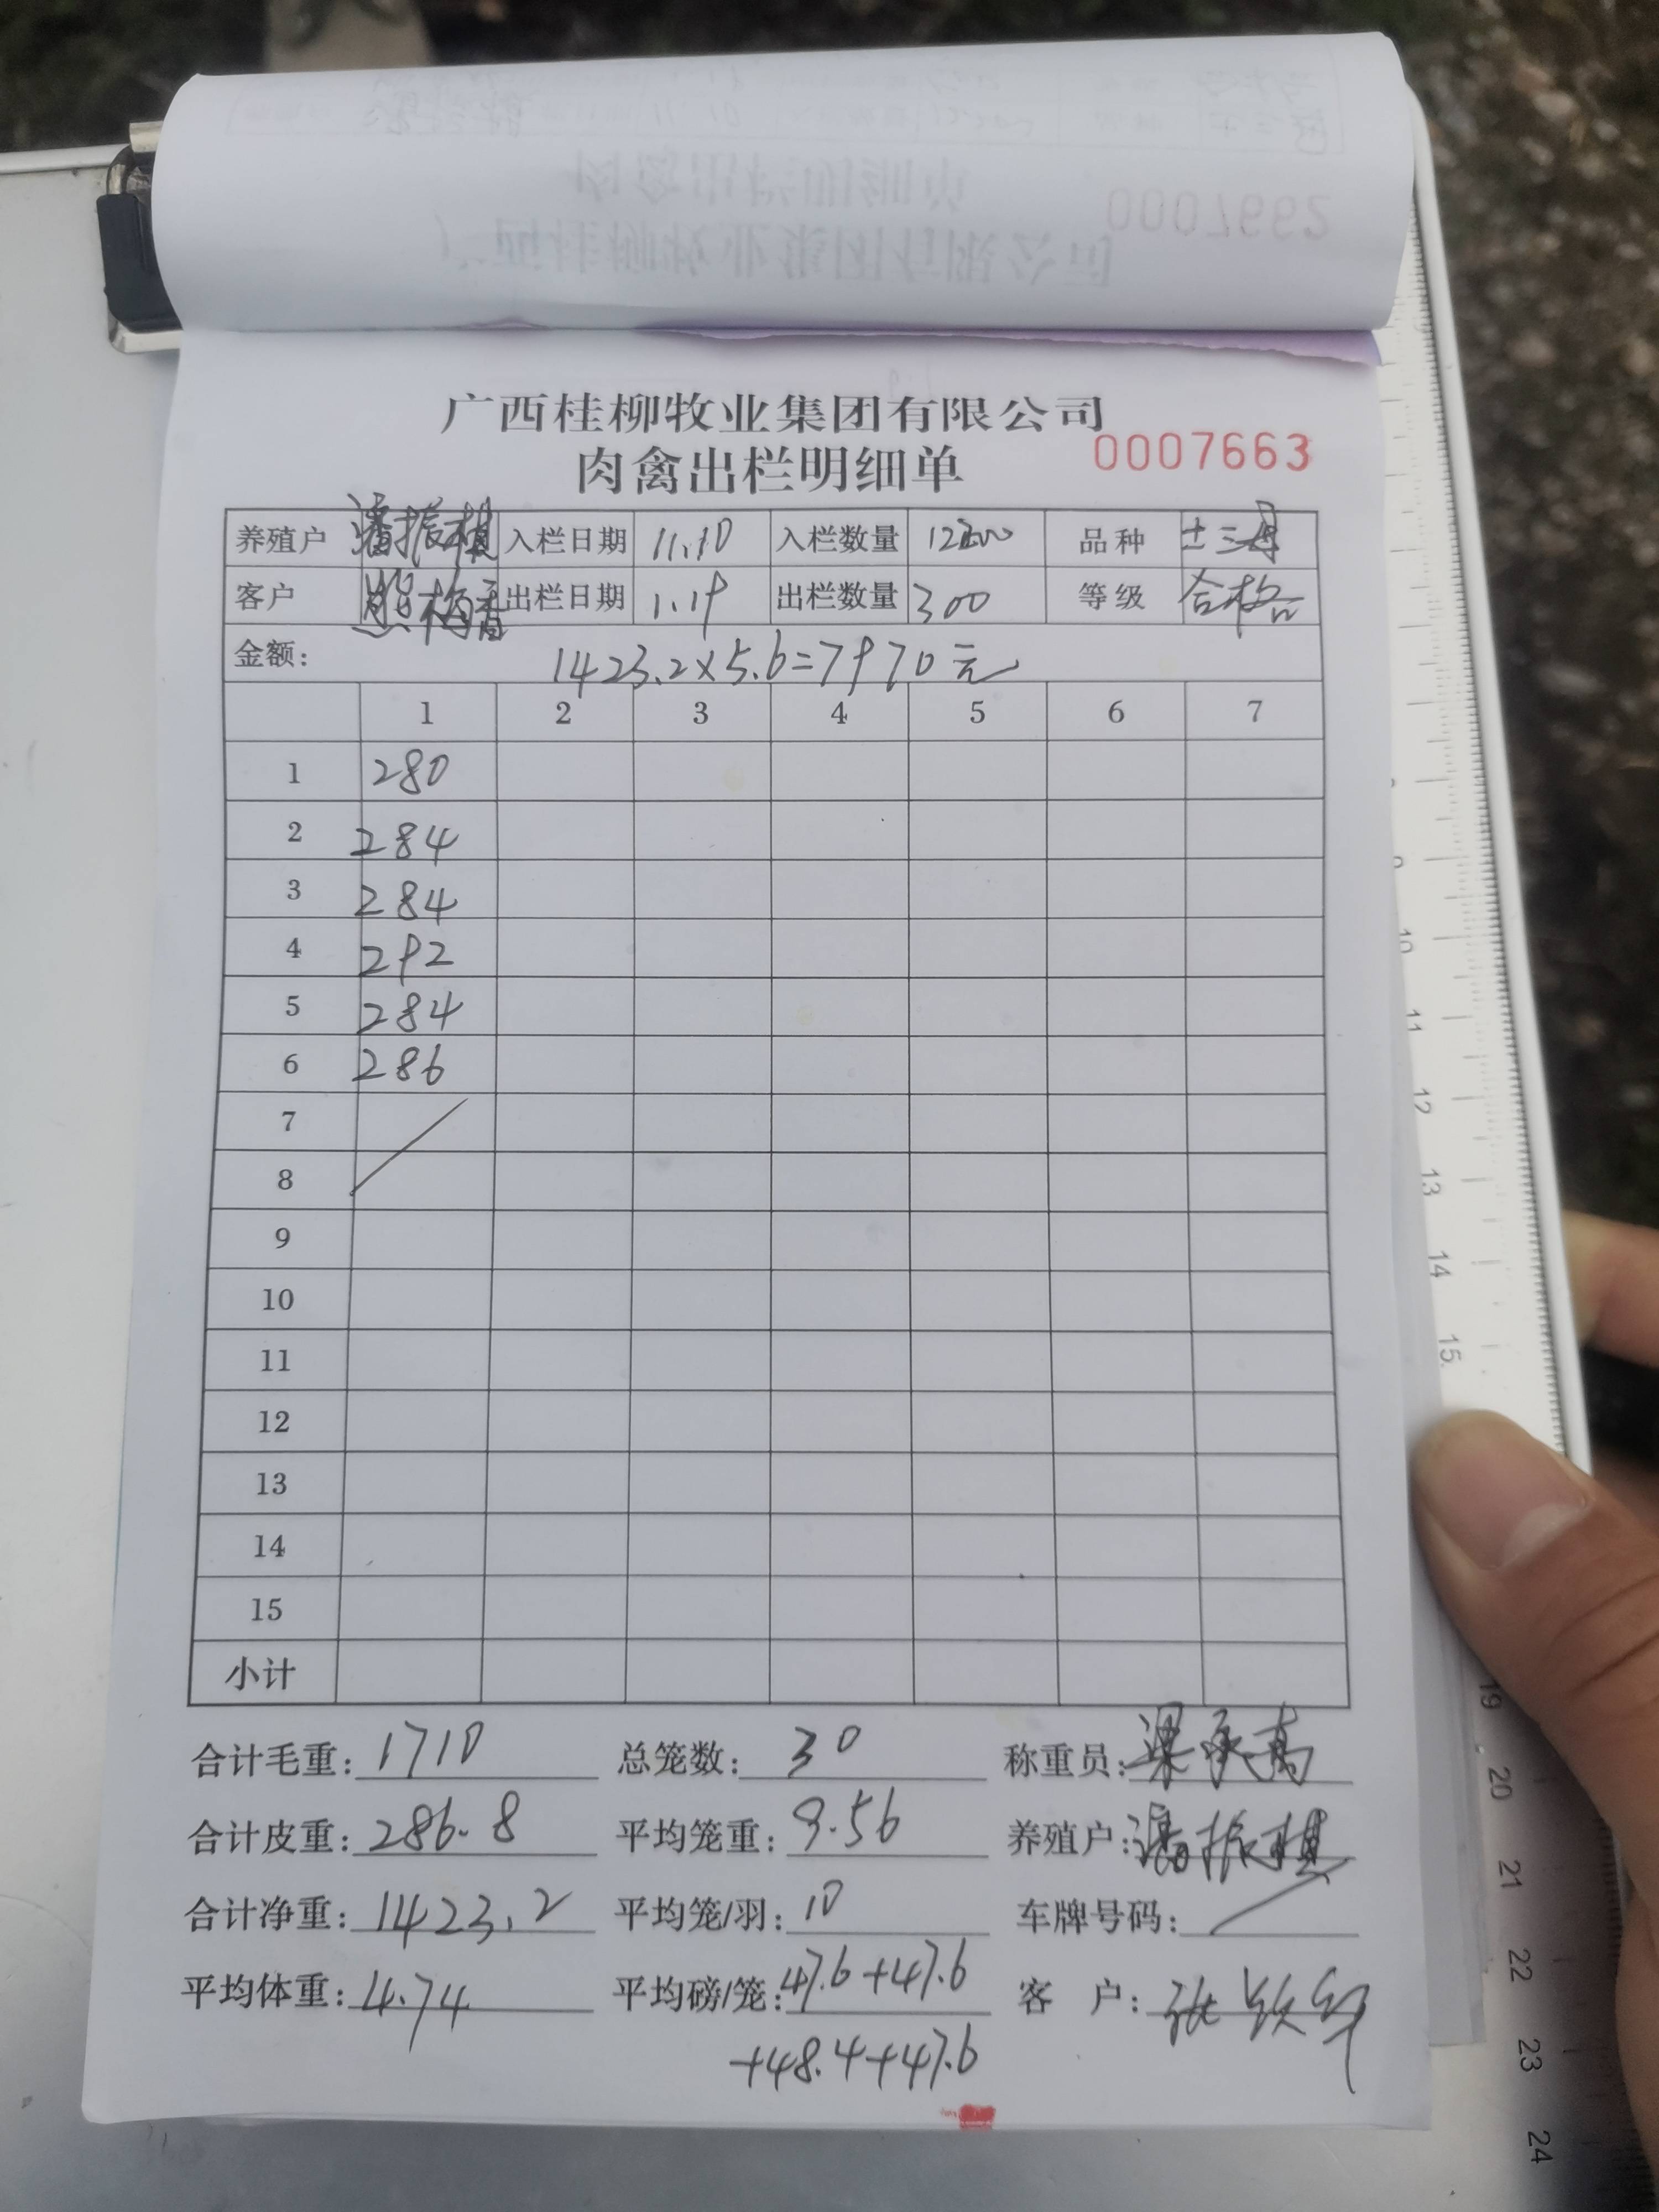 广西桂柳牧业集团有限公司
肉禽出栏明细单 0007663
养殖户 潘振棋 入栏日期 11.10 入栏数量 品种 土三
客户 熙梅香 出栏日期 1.19 出栏数量 300 等级 合格
金额: 1423.2×5.6=7970元
1 2 3 4 5 6 7
1 280
2 284
3 284
4 292
5 284
6 286
7
8
9
10
11
12
13
14
15
小计
合计毛重: 1710 总笼数: 30 称重员: 梁承高
合计皮重: 286.8 平均笼重: 9.56 养殖户: 潘振棋
合计净重: 1423.2 平均笼/羽: 10 车牌号码:
平均体重: 4.74 平均磅/笼: 47.6+47.6 客 户: 张
+48.4+47.6
9
10
11
12
13
14
15
19
20
21
22
23
24